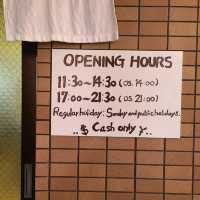 OPENING HOURS
11:30~14:30 (OS. 14:00)
17:00~21:30 (OS. 21:00)
Regular holiday; Sunday and public holidays.
Cash only